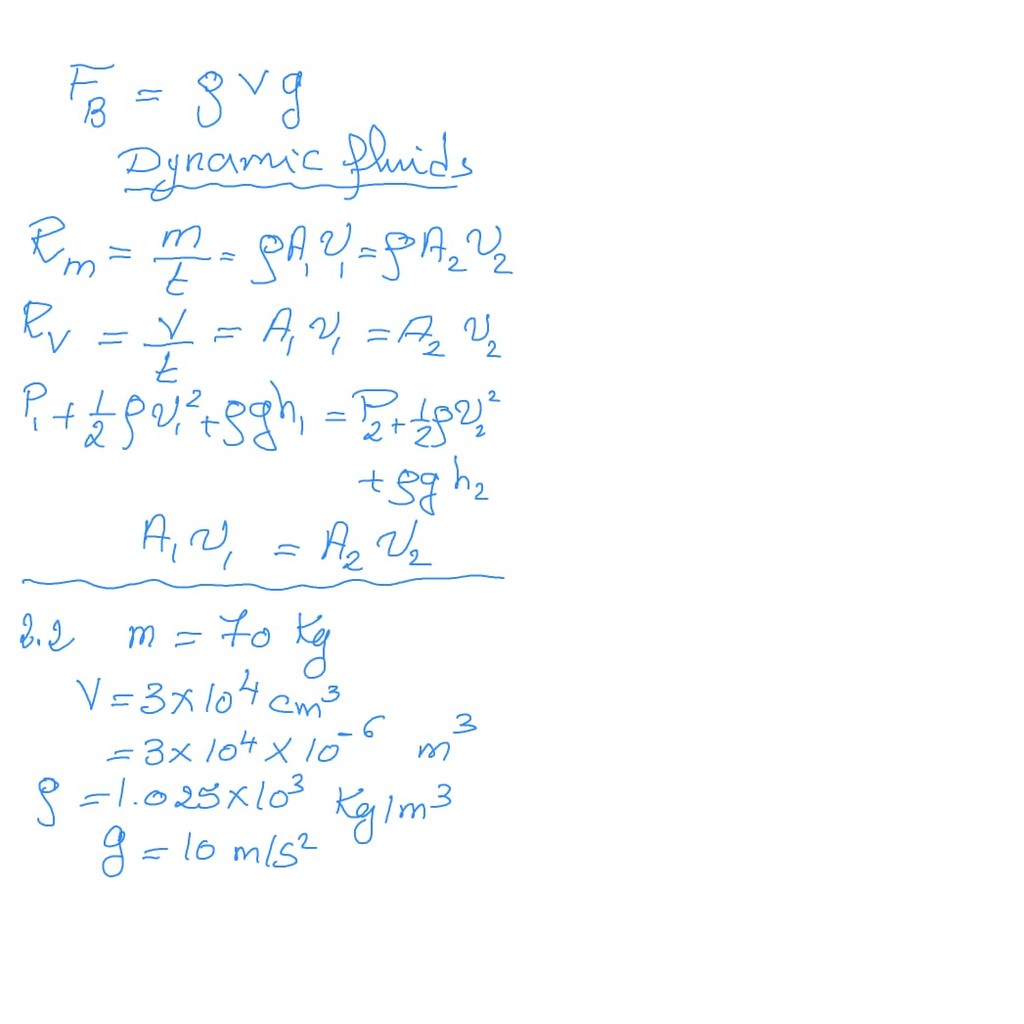 F_B = ρvg
Dynamic fluids
R_m = m/t = ρA₁v₁ = ρA₂v₂
R_v = V/t = A₁v₁ = A₂v₂
P₁ + 1/2 ρv₁² + ρgh₁ = P₂ + 1/2 ρv₂²
+ ρgh₂
A₁v₁ = A₂v₂
2.2 m = 70 Kg
V = 3 × 10⁴ cm³
= 3 × 10⁴ × 10⁻⁶ m³
ρ = 1.025 × 10³ Kg/m³
g = 10 m/s²